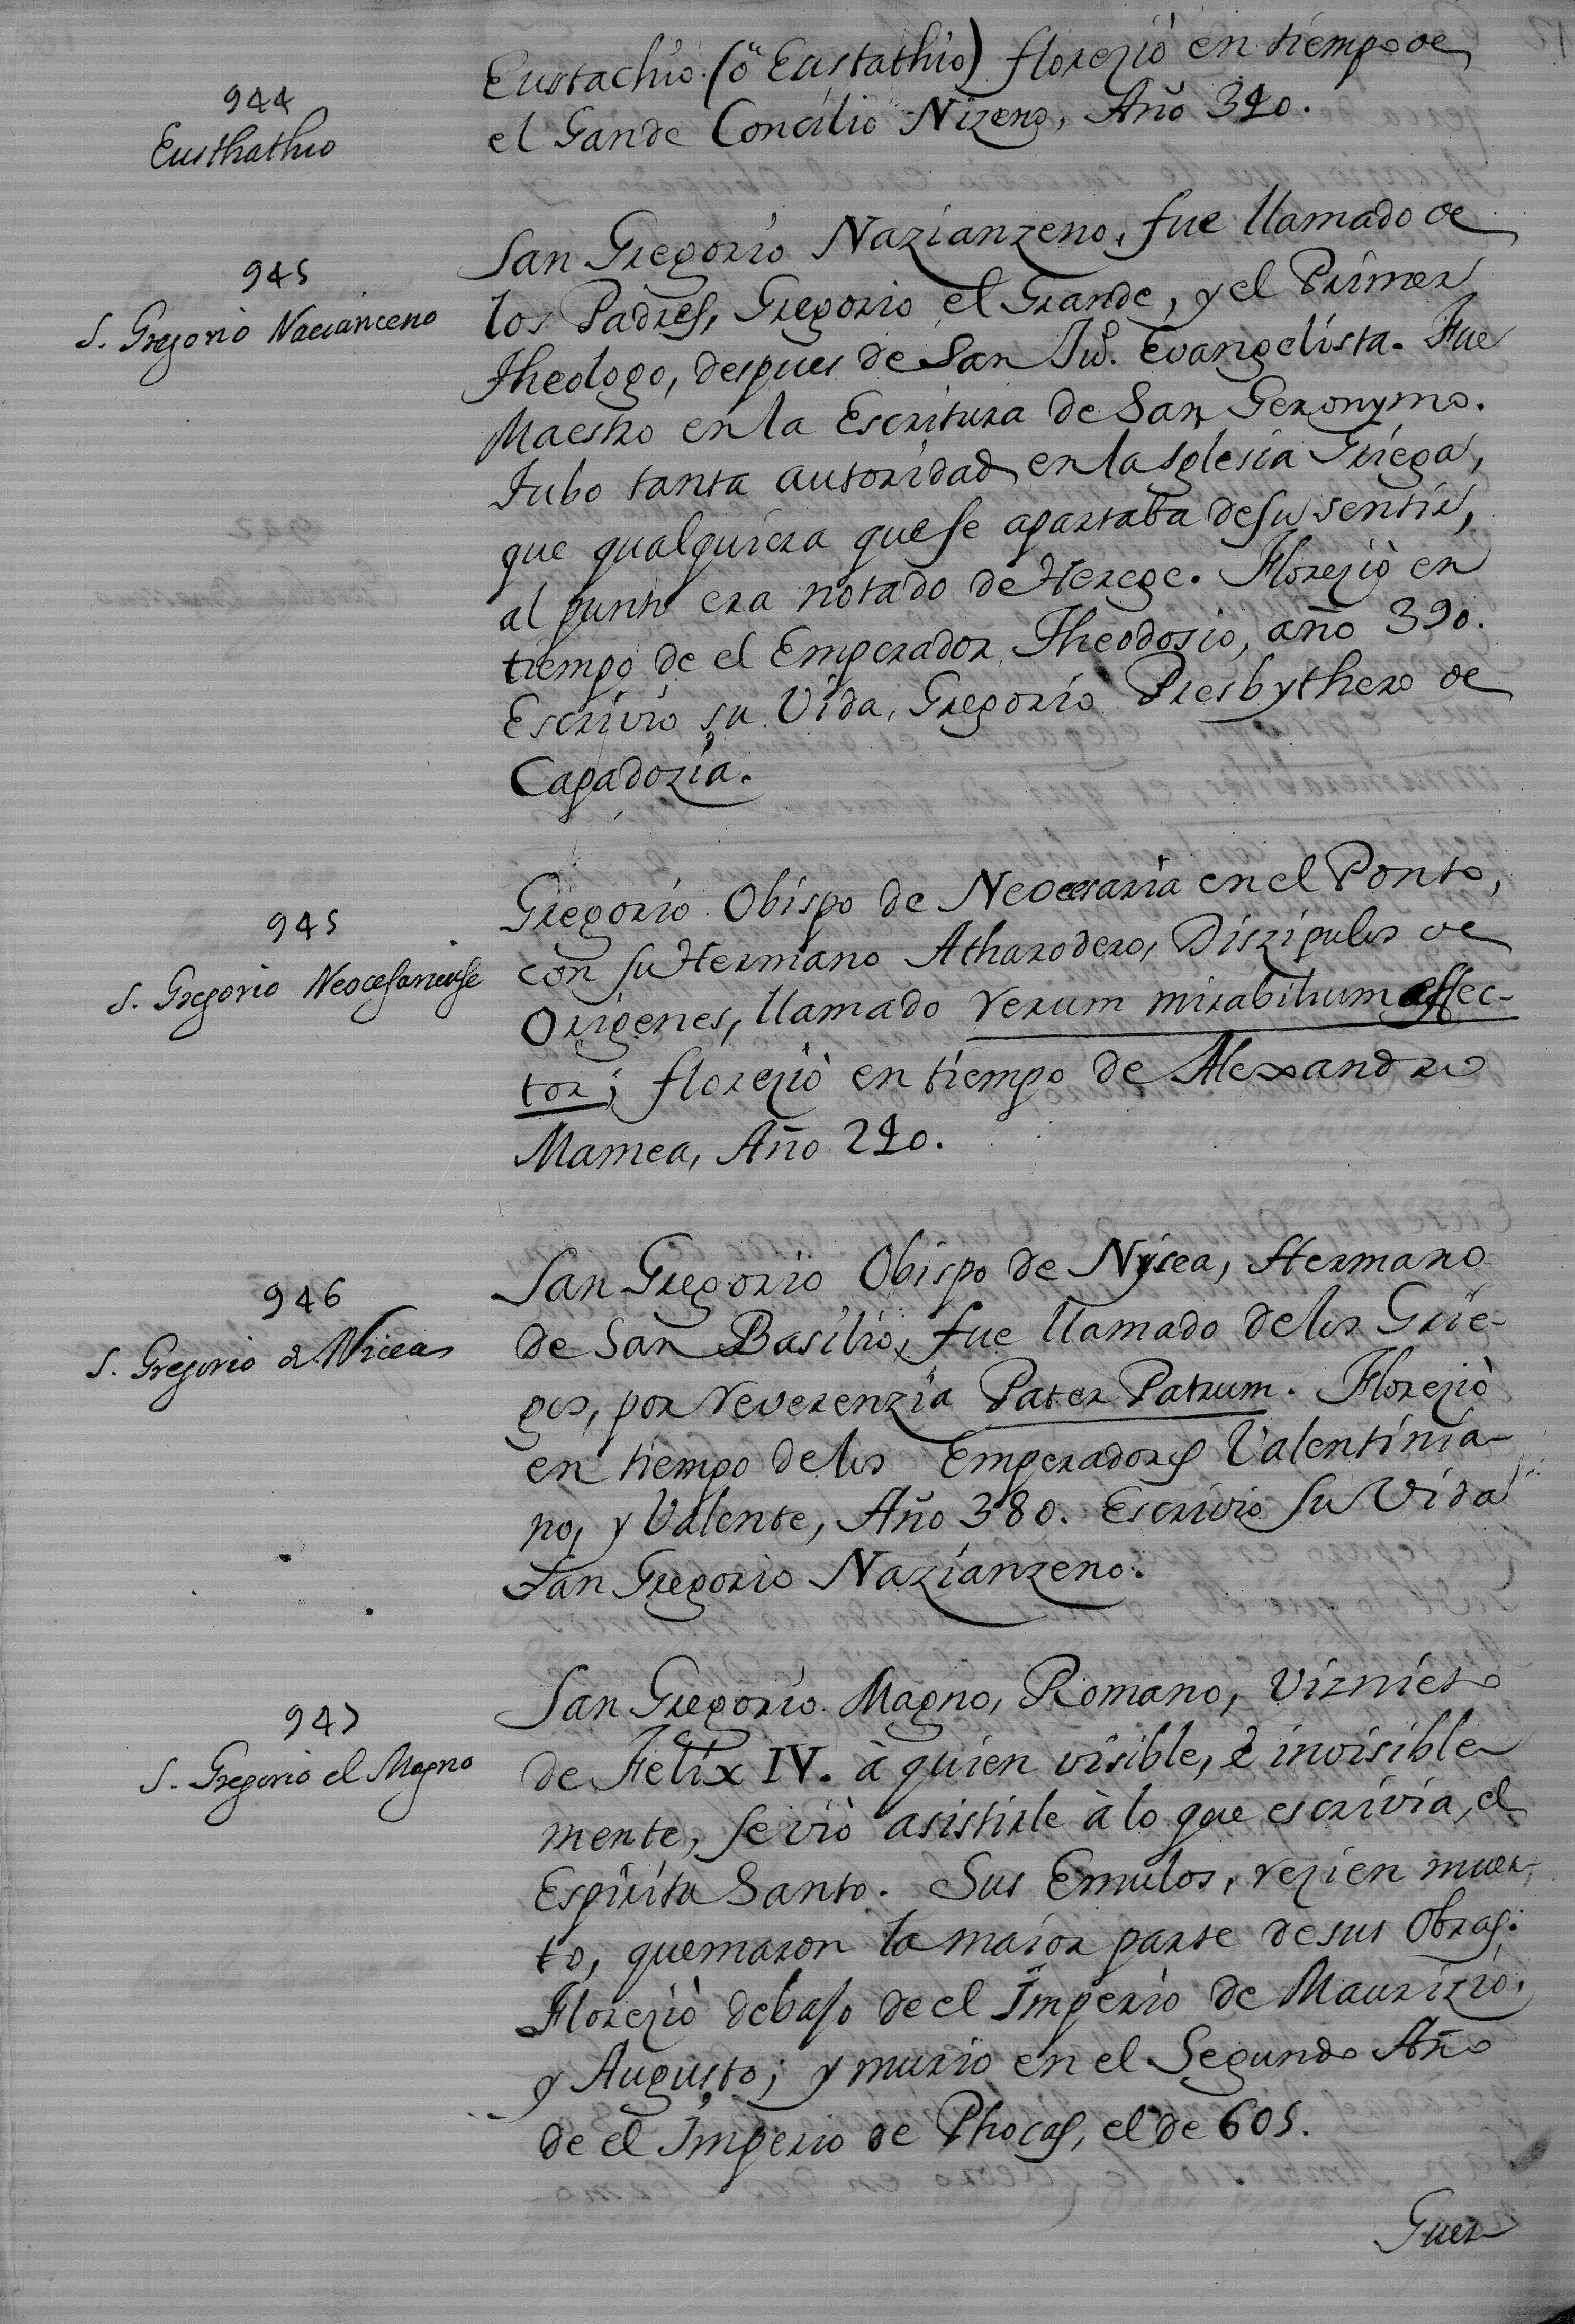 944
Eusthathio
Eustachio. (ö Eustathio) florezió en tiempo de
el Gande Concilio Nizeno, Año 320.
945
S. Gregorio Nacianceno
San Gregorio Nazianzeno, fue llamado de
los Padres, Gregorio el Grande, y el Primer
Theologo, despues de San Jũ. Evangelista. Fue
Maestro en la Escritura de San Geronymo.
Tubo tanta autoridad en la Iglesia Griega,
que qualquiera que se apartaba de su sentir,
al punto era notado de Herege. Florezió en
tiempo de el Emperador Theodosio, año 390.
Escrivio su Vida, Gregorio Presbythero de
Capadozia.
945
S. Gregorio Neocesariense
Gregorio Obispo de Neocesaria en el Ponto,
con su Hermano Atharodero, Diszipulos de
Origenes, llamado rerum mirabilium effec-
tor; florezió en tiempo de Alexandro
Mamea, Año 220.
946
S. Gregorio de Nicea
San Gregorio Obispo de Nysea, Hermano
de San Basilio, fue llamado delos Grie-
gos, por reverenzia Pater Patrum. Florezió
en tiempo delos Emperadores Valentinia-
no, y Valente, Año 380. Escrivio su Vida
San Gregorio Nazianzeno.
947
S. Gregorio el Magno
San Gregorio Magno, Romano, Viznieto
de Felix IV. à quien visible, è invisible
mente, se viò asistirle à lo que escrivia, el
Espiritu Santo. Sus Emulos, rezien muer-
to, quemaron la maior parte de sus Obras.
Florezió debaso de el Imperio de Maurizio,
y Augusto; y murio en el Segundo Año
de el Imperio de Phocas, el de 605.
Guer